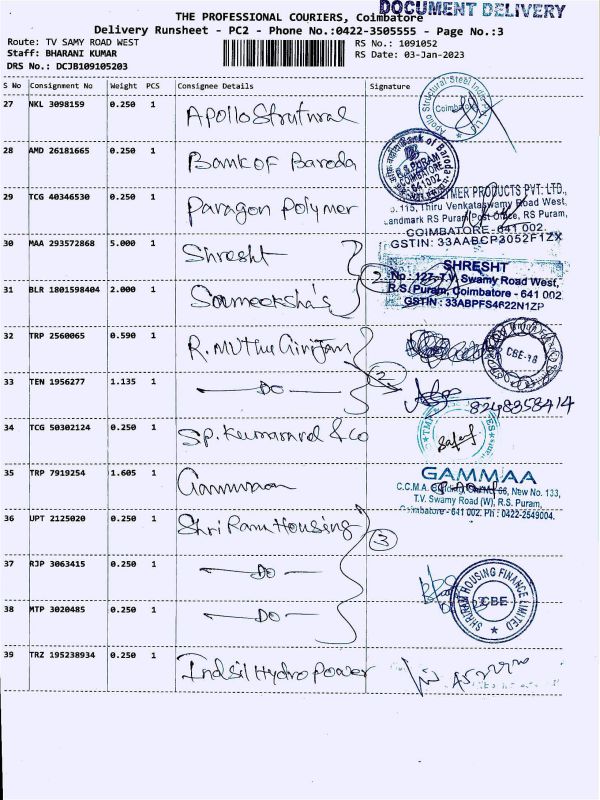 DOCUMENT DELIVERY
THE PROFESSIONAL COURIERS, Coimbatore
Delivery Runsheet - PC2 - Phone No.:0422-3505555 - Page No.:3
Route: TV SAMY ROAD WEST
RS No.: 1091052
Staff: BHARANI KUMAR
RS Date: 03-Jan-2023
DRS No.: DCJB109105203
S No Consignment No Weight PCS Consignee Details Signature
27 NKL 3098159 0.250 1 Apollo Strutural
Apollo Structural Steel
Coimbatore
28 AMD 26181665 0.250 1 Bank of Baroda
Bank of Baroda
R.S PURAM
COIMBATORE
641 002
29 TCG 40346530 0.250 1 Paragon Polymer
YMER PRODUCTS PVT. LTD.,
o. 115, Thiru Venkataswamy Road West,
Landmark RS Puram Post Office, RS Puram,
COIMBATORE-641 002.
GSTIN: 33AABCP3052F1ZX
30 MAA 293572868 5.000 1 Shresht
2
SHRESHT
No: 127, T.V. Swamy Road West,
R.S. Puram, Coimbatore - 641 002
GSTIN : 33ABPFS4622N1ZP
31 BLR 1801598404 2.000 1 Sameeksha's
32 TRP 2560065 0.590 1 R. Muthu Girijam
2
CBE-18
33 TEN 1956277 1.135 1 — DO —
8248358414
34 TCG 50302124 0.250 1 Sp. Kumarand & Co
35 TRP 7919254 1.605 1 Gammaa
GAMMAA
C.C.M.A. Building, 66, New No. 133,
T.V. Swamy Road (W), R.S. Puram,
Coimbatore - 641 002. Ph : 0422-2549004.
36 UPT 2125020 0.250 1 Shri Ram Housing
3
37 RJP 3063415 0.250 1 — DO —
SHRIRAM HOUSING FINANCE LIMITED
CBE
38 MTP 3020485 0.250 1 — DO —
39 TRZ 195238934 0.250 1 Indsil Hydro Power